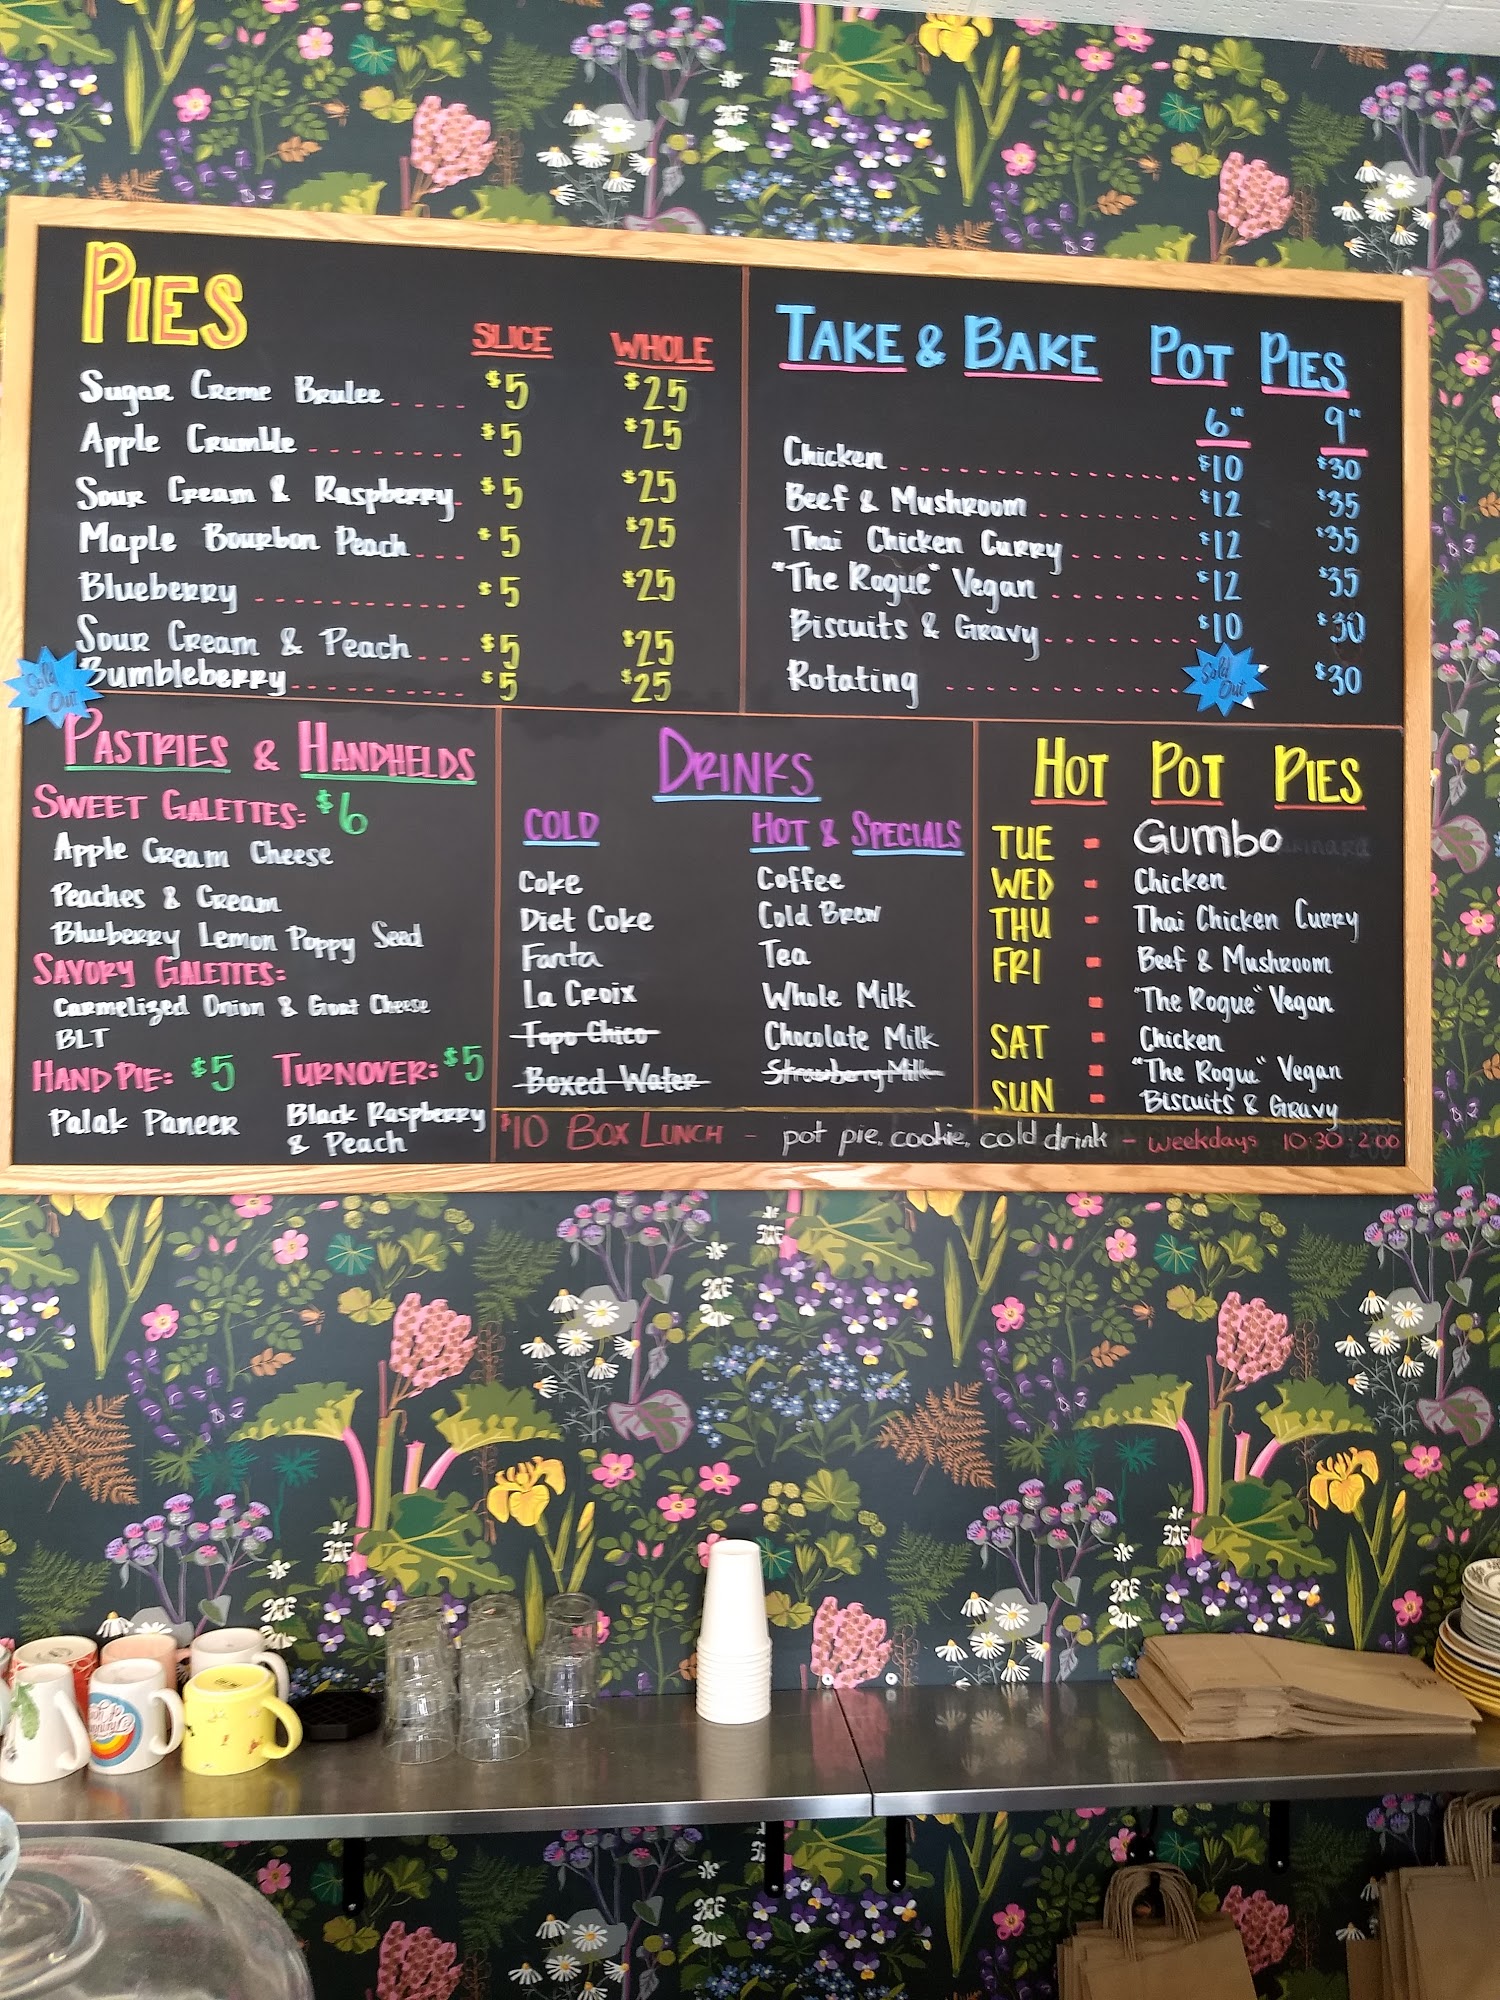 PIES
SLICE WHOLE
Sugar Creme Brulee .... $5 $25
Apple Crumble ........ $5 $25
Sour Cream & Raspberry. $5 $25
Maple Bourbon Peach ... $5 $25
Blueberry ............ $5 $25
Sour Cream & Peach .... $5 $25
Sold Out
Bumbleberry .......... $5 $25
TAKE & BAKE POT PIES
6" 9"
Chicken .................. $10 $30
Beef & Mushroom .......... $12 $35
Thai Chicken Curry ....... $12 $35
"The Rogue" Vegan ........ $12 $35
Biscuits & Gravy ......... $10 $30
Rotating ............... Sold Out $30
PASTRIES & HANDHELDS
SWEET GALETTES: $6
Apple Cream Cheese
Peaches & Cream
Blueberry Lemon Poppy Seed
SAVORY GALETTES:
Carmelized Onion & Goat Cheese
BLT
HAND PIE: $5
Palak Paneer
TURNOVER: $5
Black Raspberry
& Peach
DRINKS
COLD
Coke
Diet Coke
Fanta
La Croix
Topo Chico
Boxed Water
HOT & SPECIALS
Coffee
Cold Brew
Tea
Whole Milk
Chocolate Milk
Strawberry Milk
HOT POT PIES
TUE - Gumbo
WED - Chicken
THU - Thai Chicken Curry
FRI - Beef & Mushroom
- "The Rogue" Vegan
SAT - Chicken
- "The Rogue" Vegan
SUN - Biscuits & Gravy
$10 BOX LUNCH - pot pie, cookie, cold drink - weekdays 10:30-2:00